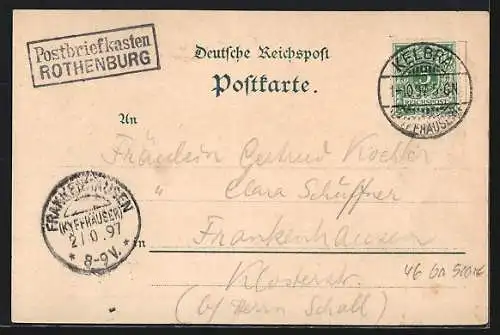 Postbriefkasten
ROTHENBURG
Deutsche Reichspost
Postkarte.
KELBRA
1 10 97 5-6N
(KYFFHÄUSER)
5
REICHSPOST
An
Fräulein Gertrud Koehler
" Clara Schüffner
in Frankenhausen
Klosterstr.
(b/ Herrn Schall)
FRANKENHAUSEN
(KYFFHÄUSER)
2 10 97
* 8-9V. *
46